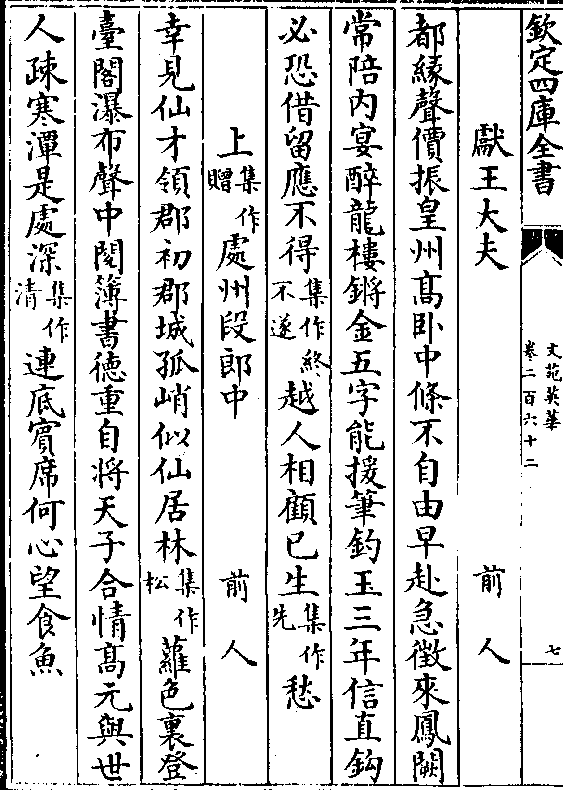 欽定四庫全書
文苑英華
卷二百六十二
七
獻王大夫 前人
都縁聲價振皇州髙卧中條不自由早赴急徵來鳳闕
常陪内宴醉龍樓鏘金五字能援筆釣玉三年信直鈎
必恐借留應不得集作終不遂越人相顧已生集作先愁
上集作贈處州段郎中 前人
幸見仙才領郡初郡城孤峭似仙居林集作松蘿色裏登
臺閣瀑布聲中閱簿書徳重自將天子合情髙元與世
人疎寒潭是處深集作清連底賓席何心望食魚